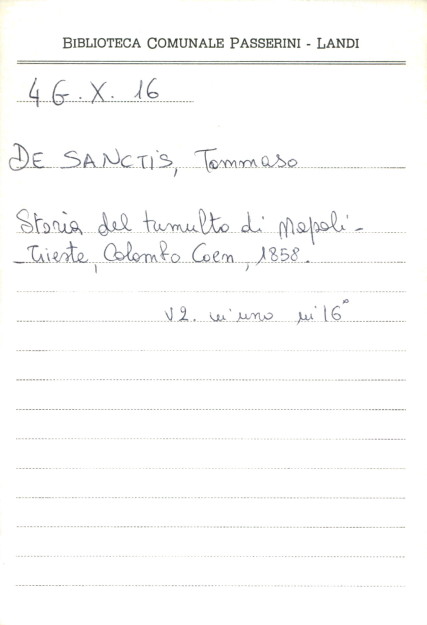 BIBLIOTECA COMUNALE PASSERINI - LANDI
4 G. X. 16
DE SANCTIS, Tommaso
Storia del tumulto di Napoli -
- Trieste, Colombo Coen, 1858.
V 2. in uno in 16°